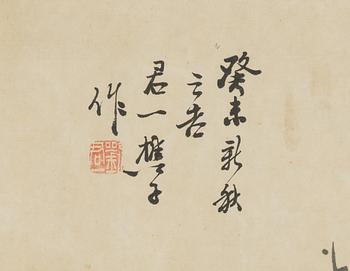 癸未新秋
之吉
君一樵子
作